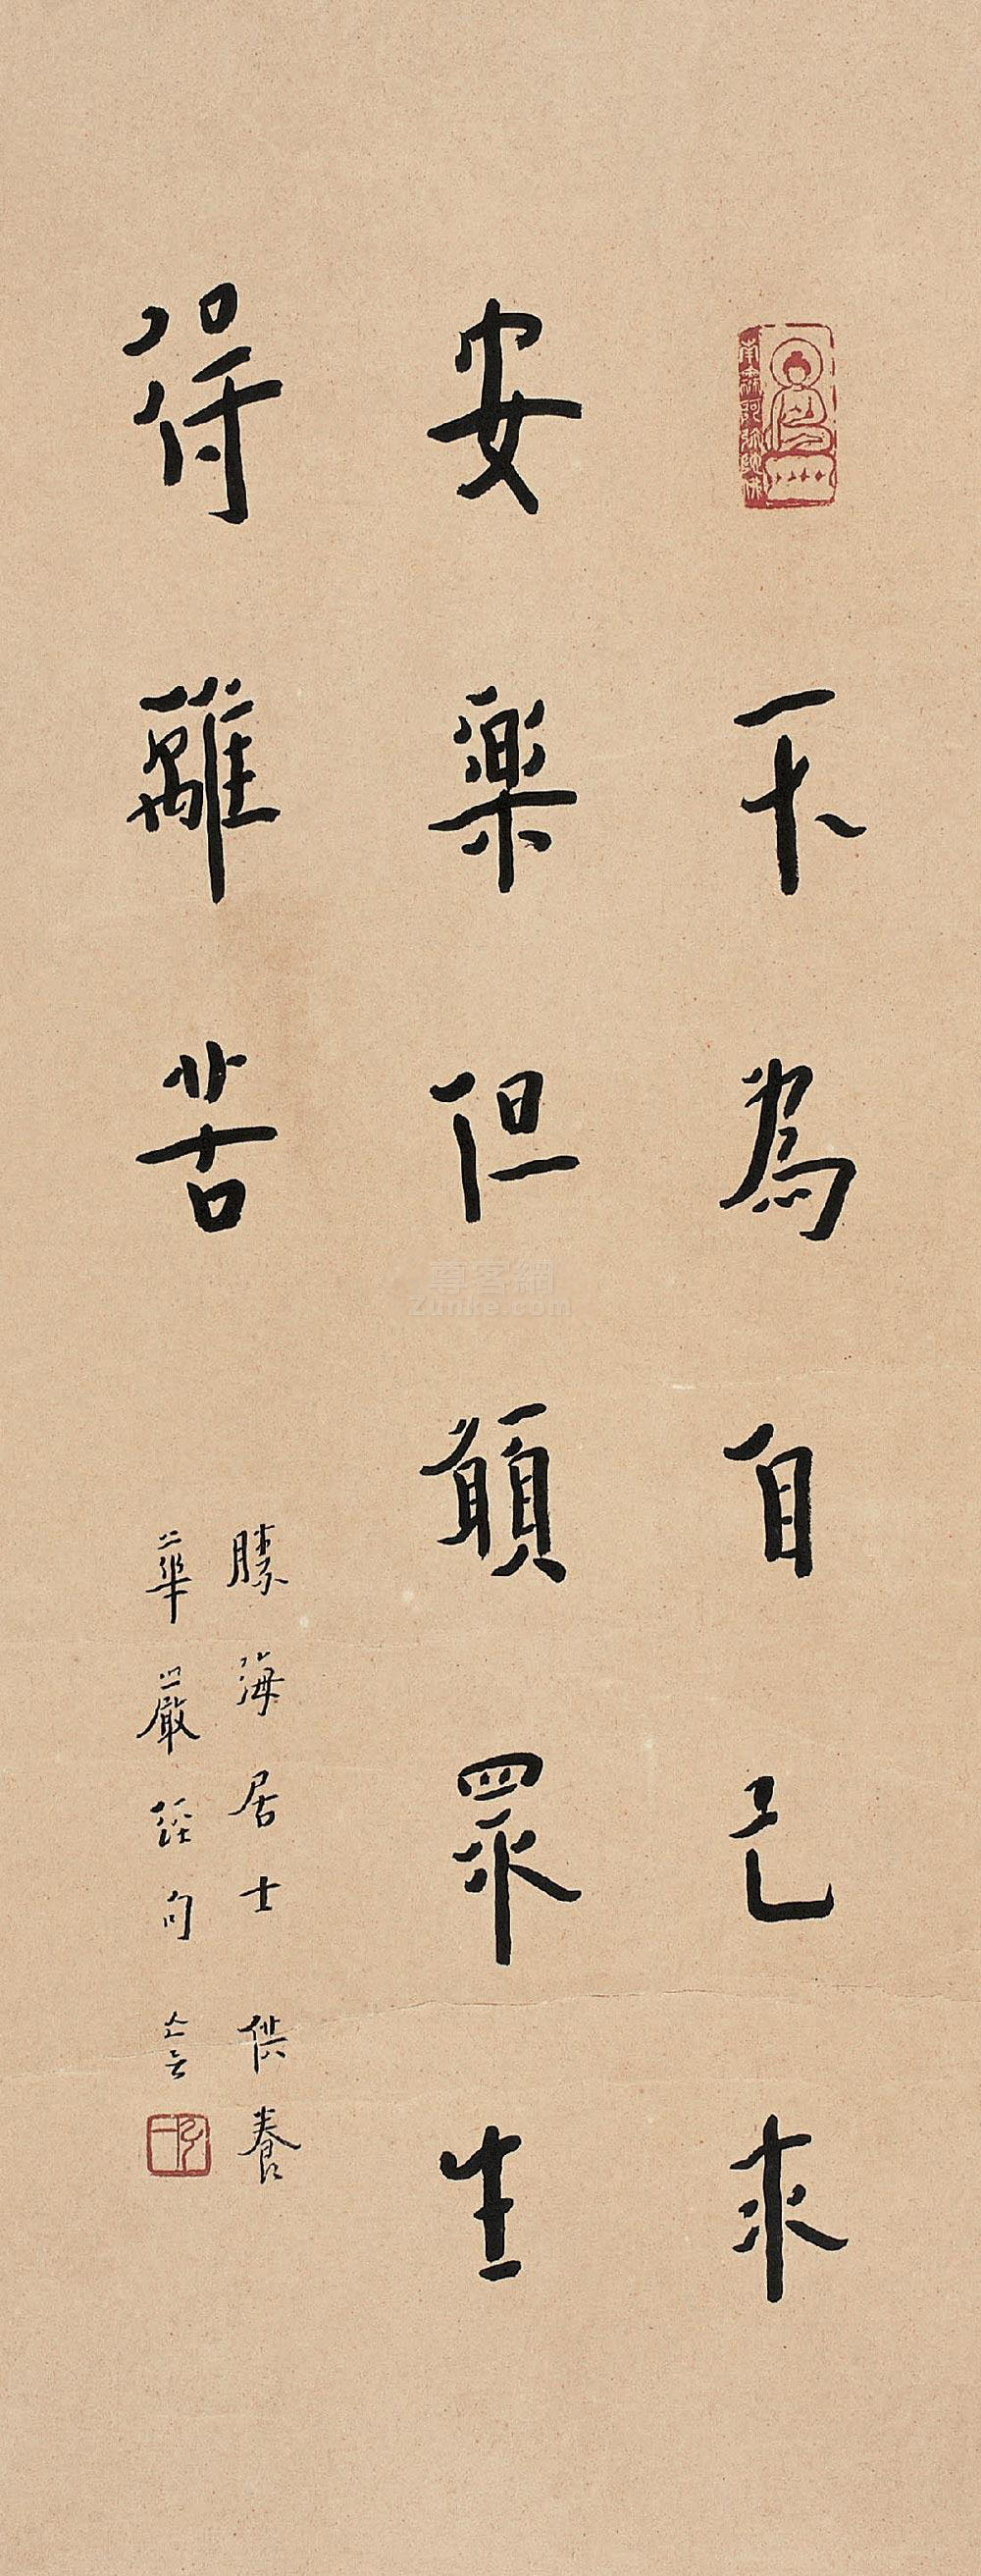 不為自己求
安樂但願眾生
得離苦
勝海居士供養
華嚴經句
南無阿彌陀佛
尊客網
Zunke.com